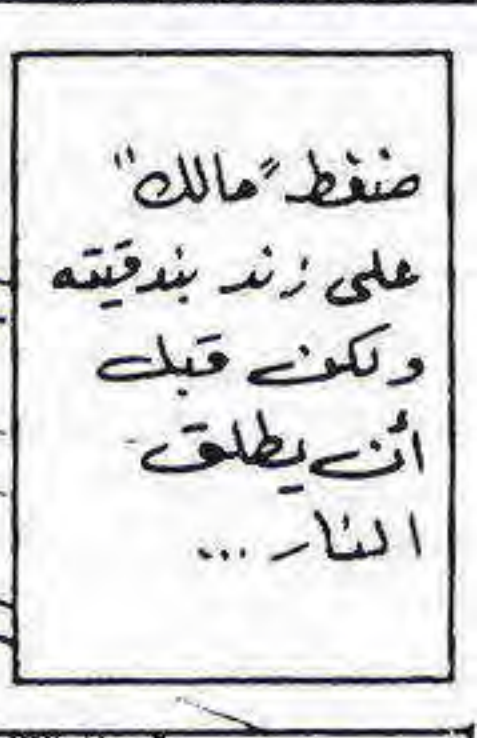 ضغط "مالك"
على زند بندقيته
ولكن قبل
أن يطلق
النار ...